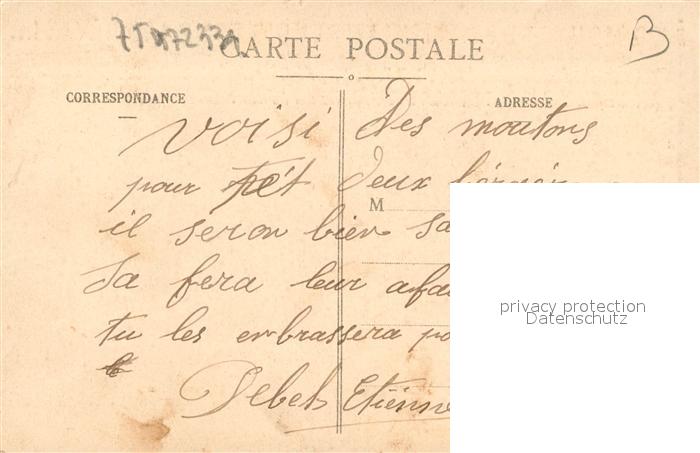 75 872334
B
CARTE POSTALE
CORRESPONDANCE
ADRESSE
voisi Des moutons
pour deux
M
il seron bien
Sa fera leur
tu les enbrassera
Debels Etienne
privacy protection
Datenschutz